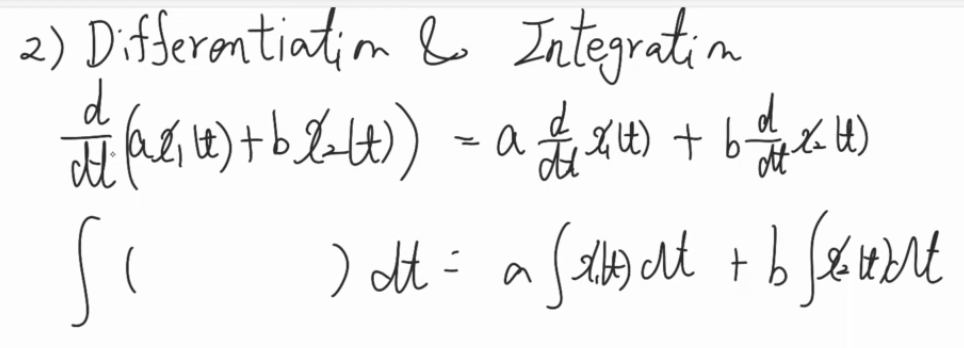 2) Differentiation & Integration
d/dt (a x₁(t) + b x₂(t)) = a d/dt x₁(t) + b d/dt x₂(t)
∫ ( ) dt = a ∫ x₁(t) dt + b ∫ x₂(t) dt